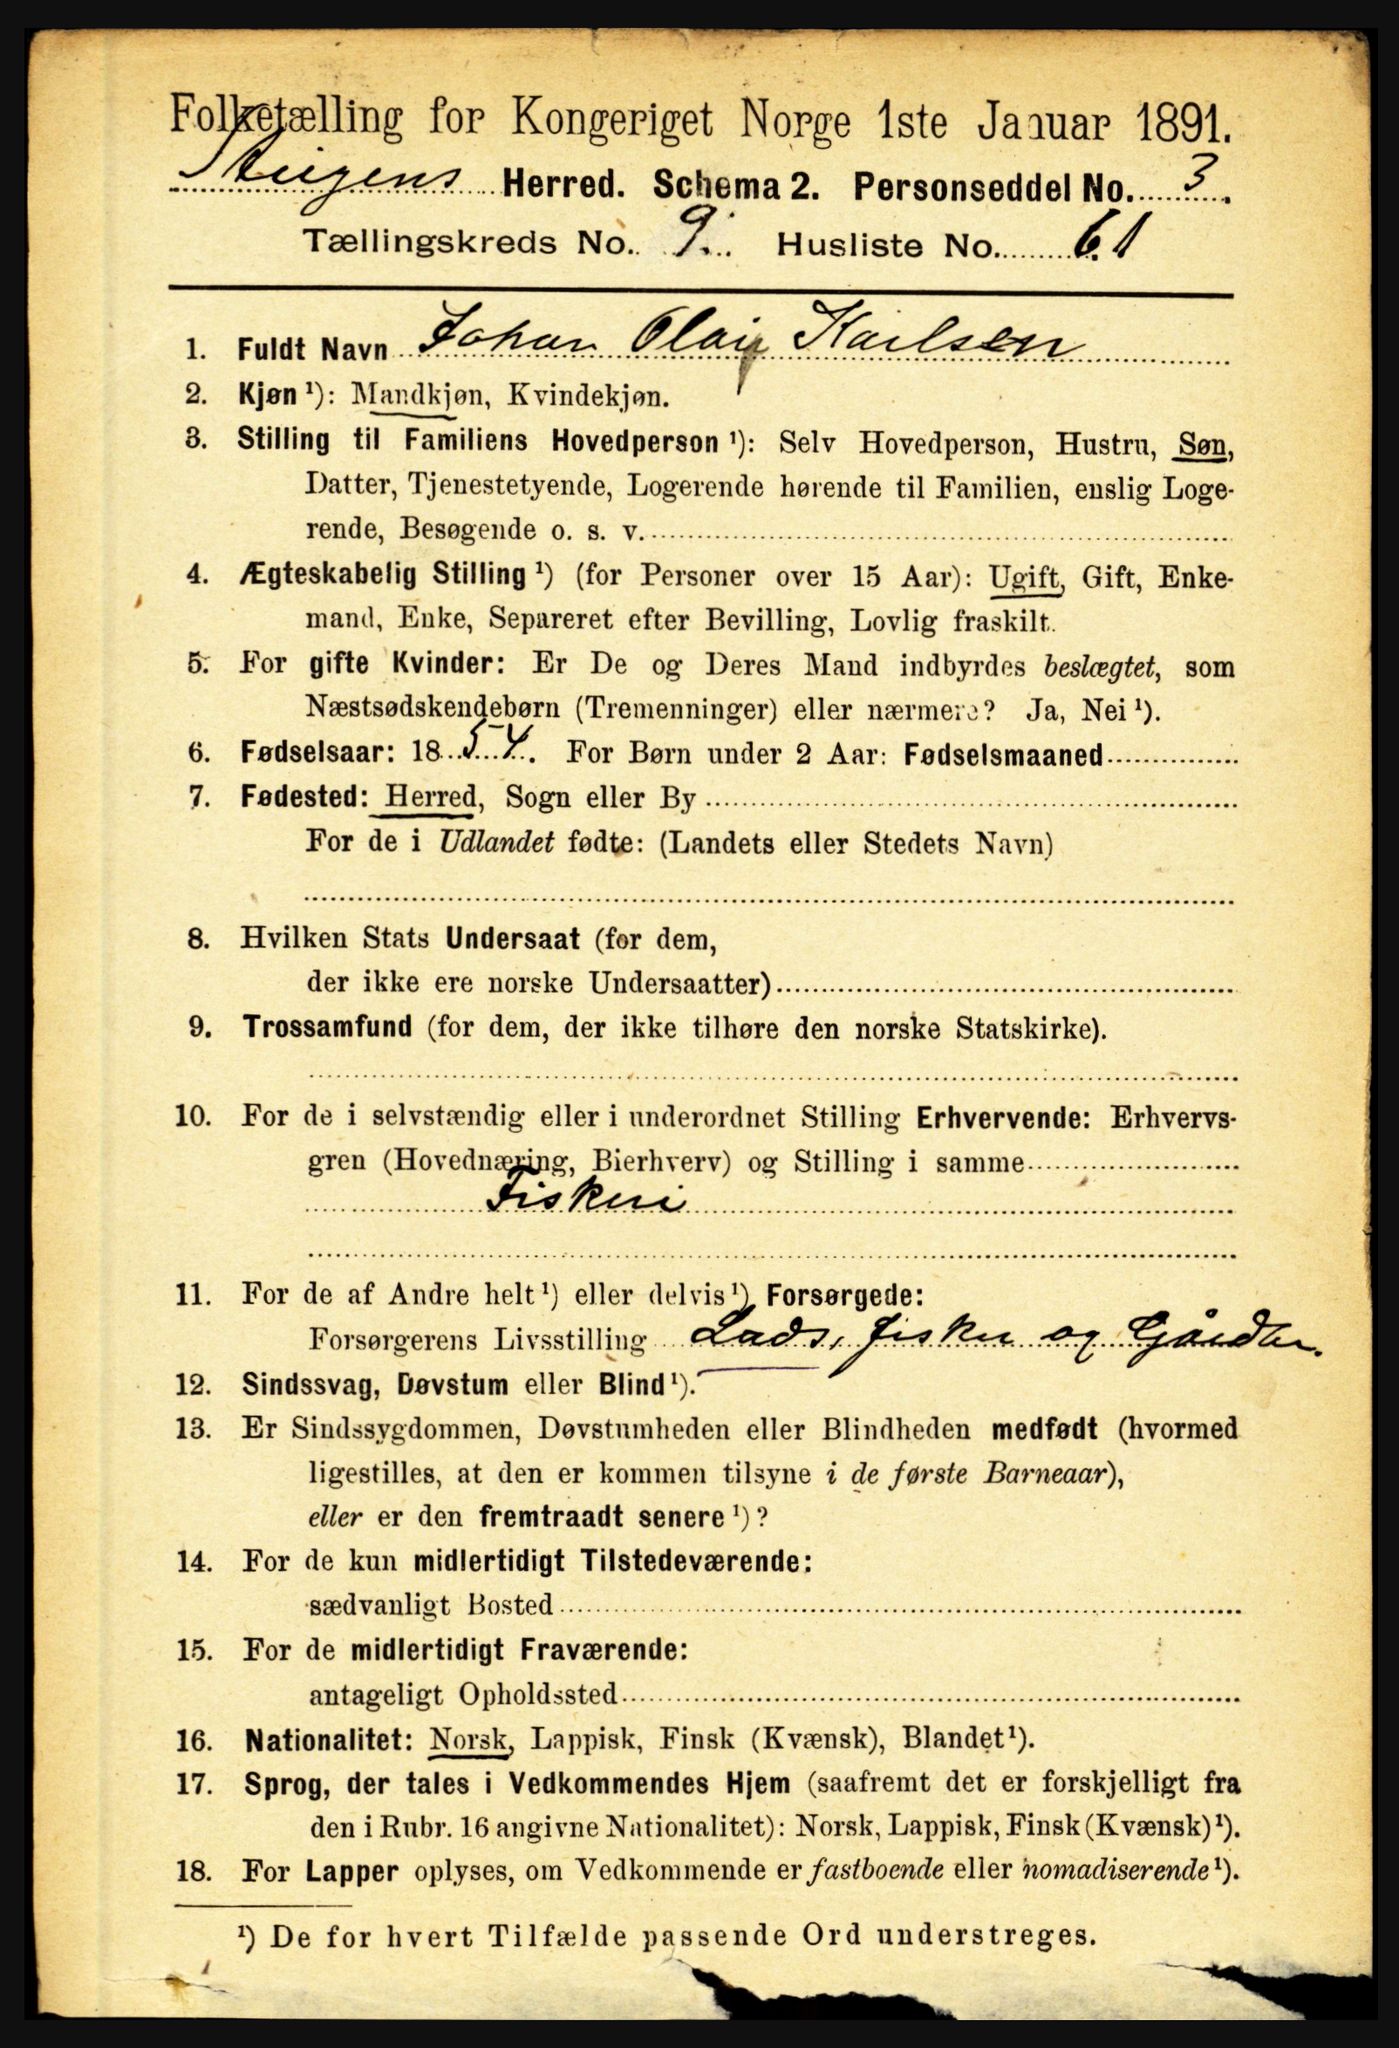 Folketælling for Kongeriget Norge 1ste Januar 1891.
Steigens Herred. Schema 2. Personseddel No. 3.
Tællingskreds No. 9. Husliste No. 61
1. Fuldt Navn Johan Olai Karlsen
2. Kjøn ¹): Mandkjøn, Kvindekjøn.
3. Stilling til Familiens Hovedperson ¹): Selv Hovedperson, Hustru, Søn,
Datter, Tjenestetyende, Logerende hørende til Familien, enslig Loge-
rende, Besøgende o. s. v.
4. Ægteskabelig Stilling ¹) (for Personer over 15 Aar): Ugift, Gift, Enke-
mand, Enke, Separeret efter Bevilling, Lovlig fraskilt.
5. For gifte Kvinder: Er De og Deres Mand indbyrdes beslægtet, som
Næstsødskendebørn (Tremenninger) eller nærmere? Ja, Nei ¹).
6. Fødselsaar: 1854. For Børn under 2 Aar: Fødselsmaaned
7. Fødested: Herred, Sogn eller By
For de i Udlandet fødte: (Landets eller Stedets Navn)
8. Hvilken Stats Undersaat (for dem,
der ikke ere norske Undersaatter)
9. Trossamfund (for dem, der ikke tilhøre den norske Statskirke).
10. For de i selvstændig eller i underordnet Stilling Erhvervende: Erhvervs-
gren (Hovednæring, Bierhverv) og Stilling i samme
Fiskeri
11. For de af Andre helt ¹) eller delvis ¹) Forsørgede:
Forsørgerens Livsstilling Lods, fisker og Gårdbr.
12. Sindssvag, Døvstum eller Blind ¹).
13. Er Sindssygdommen, Døvstumheden eller Blindheden medfødt (hvormed
ligestilles, at den er kommen tilsyne i de første Barneaar),
eller er den fremtraadt senere ¹)?
14. For de kun midlertidigt Tilstedeværende:
sædvanligt Bosted
15. For de midlertidigt Fraværende:
antageligt Opholdssted
16. Nationalitet: Norsk, Lappisk, Finsk (Kvænsk), Blandet ¹).
17. Sprog, der tales i Vedkommendes Hjem (saafremt det er forskjelligt fra
den i Rubr. 16 angivne Nationalitet): Norsk, Lappisk, Finsk (Kvænsk) ¹).
18. For Lapper oplyses, om Vedkommende er fastboende eller nomadiserende ¹).
¹) De for hvert Tilfælde passende Ord understreges.